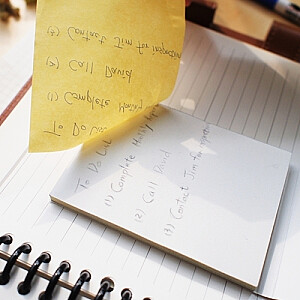 To Do List
(1) Complete Monthly
(2) Call David
(3) Contact Jim for
To Do List
(1) Complete Monthly
(2) Call David
(3) Contact Jim for inspection